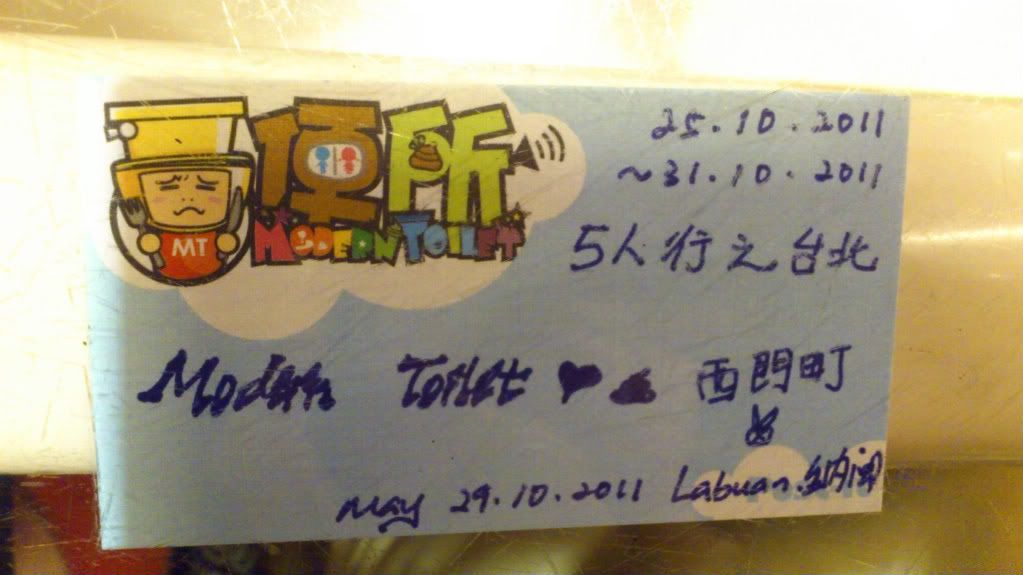 便所
MODERN TOILET
MT
25.10.2011
~31.10.2011
5人行之台北
Modern Toilet 西門町
May 29.10.2011 Labuan.納闽